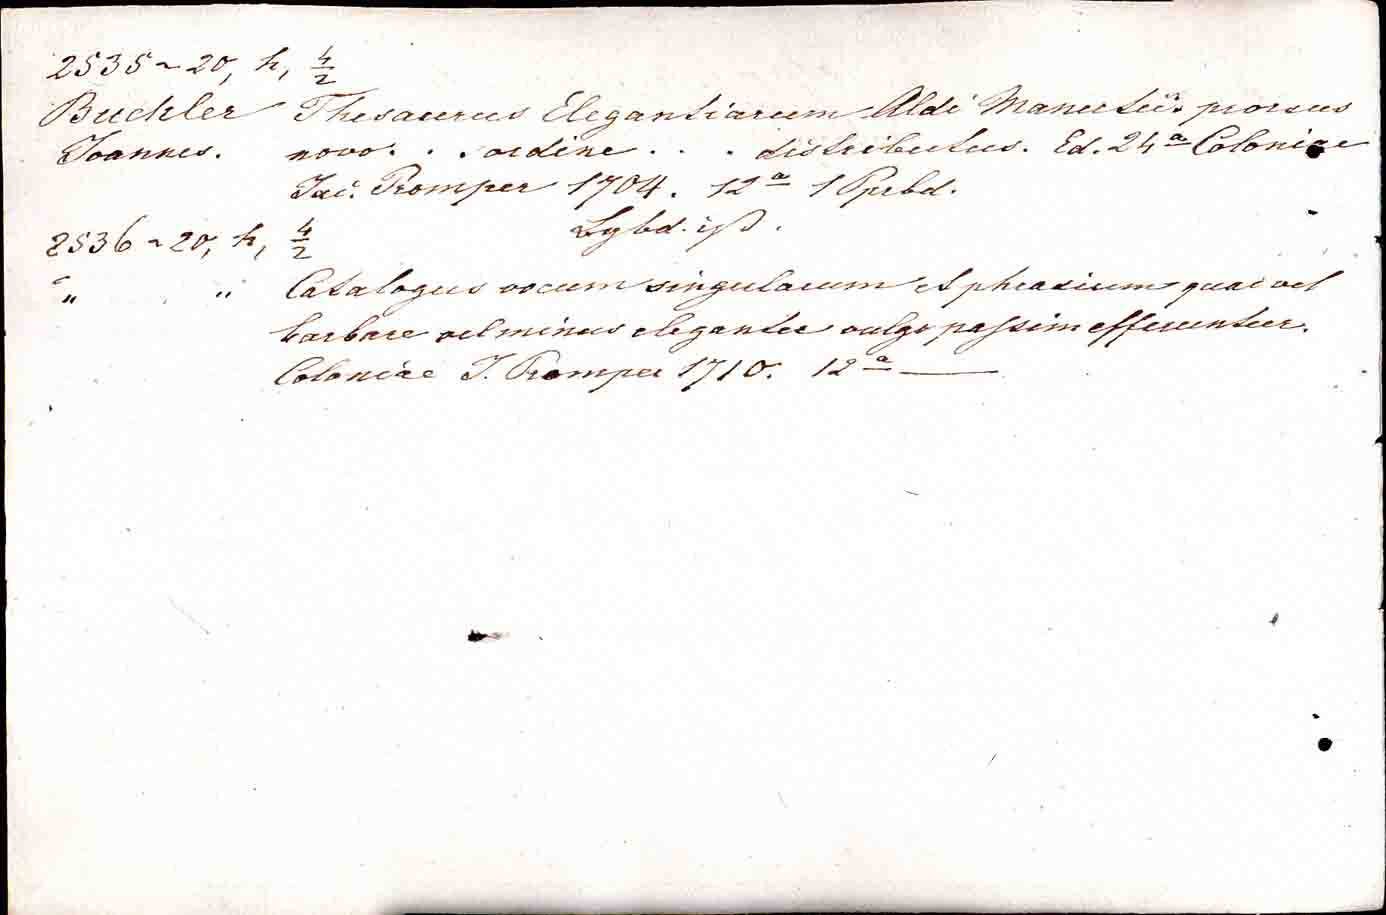 2535~20, h, 4/2
Buchler Thesaurus Elegantiarum Aldi Manutii. prorsus
Joannes. novo. . . ordine . . . distributus. Ed. 24a Coloniae
Jac. Promper 1704. 12a 1 Pprbd.
Lgbd.
2536~20, h, 4/2
" " Catalogus vocum singularum et phrasium quae vel
barbare vel minus eleganter vulgo passim efferuntur.
Coloniae J. Promper 1710. 12a —